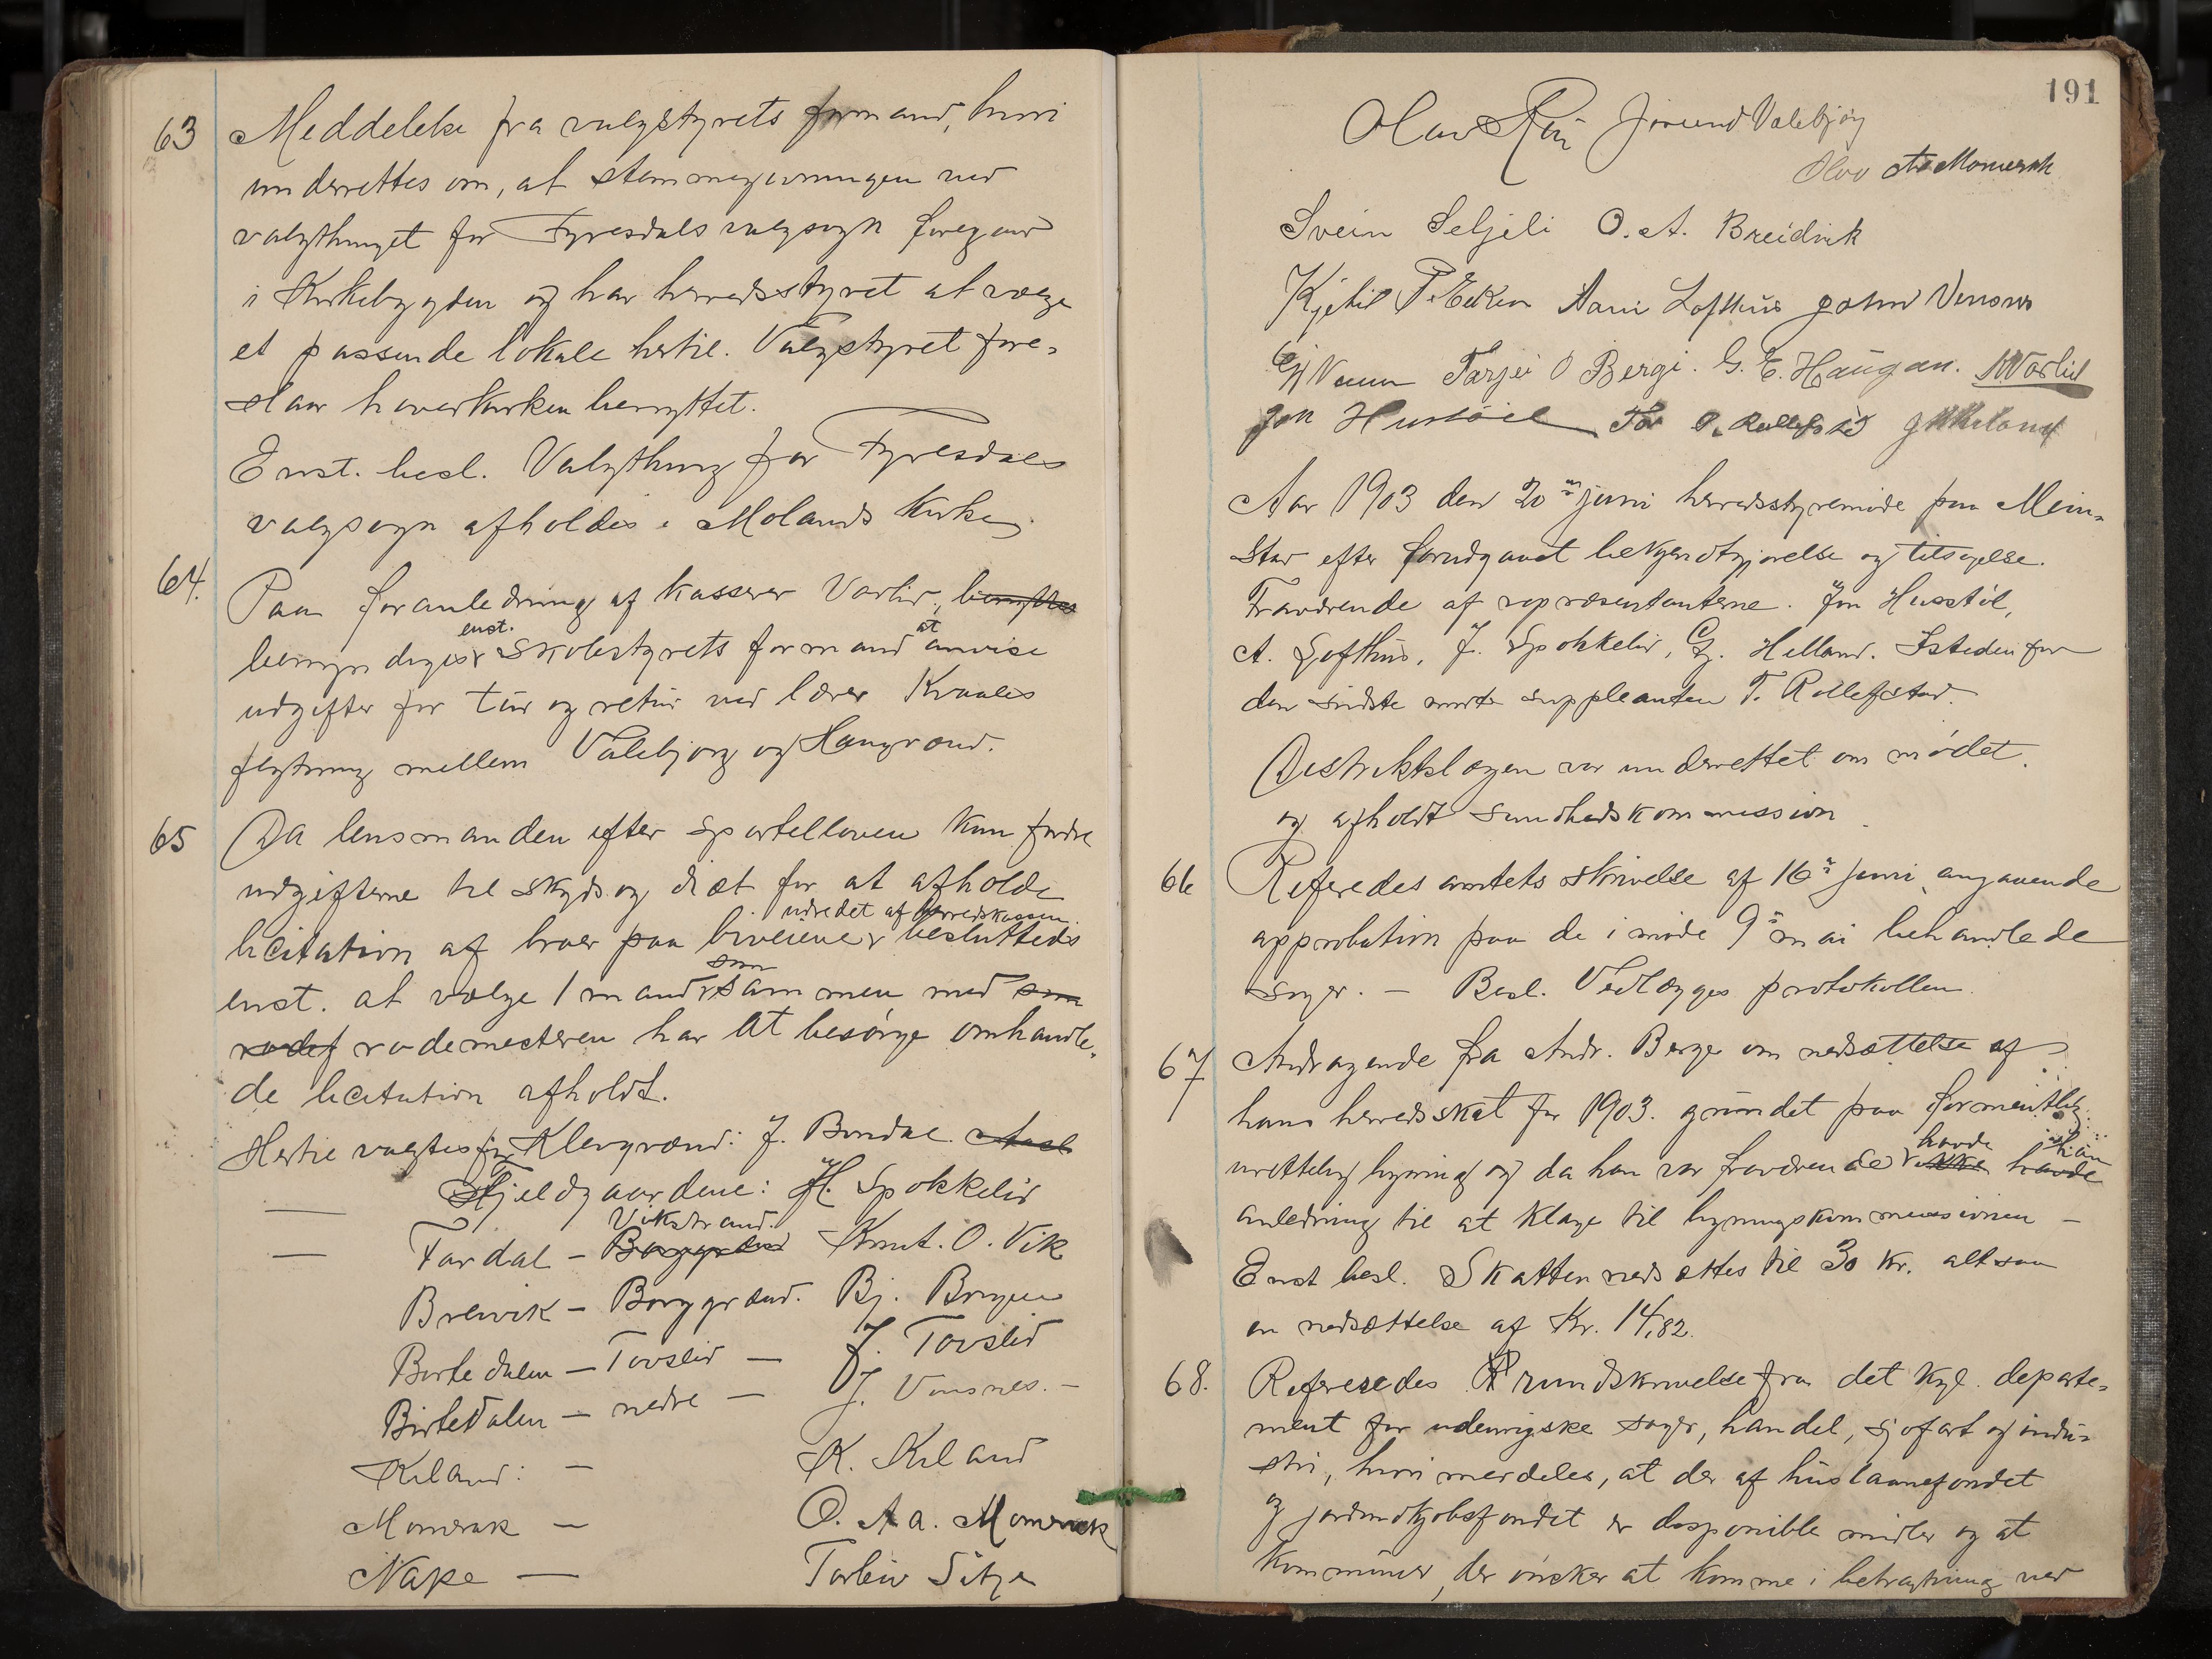 63 Meddelelse fra valgstyrets formand, hvori
underrettes om, at stemmegivningen ved
valgthinget for Fyresdals valgsogn foregaar
i Kirkebygden og har herredsstyret at vælge
et passende lokale hertil. Valgstyret fore-
slaar hovedkirken benyttet.
Enst. besl. Valgthing for Fyresdals
valgsogn afholdes i Molands Kirke
64. Paa foranledning af kasserer Vorlid,
bemyndiges enst. skolestyrets formand at anvise
udgifter for tur og retur ved lærer Kraales
flytning mellem Valebjorg og Haugrænd.
65 Da lensmanden efter sportelloven kun fordre
udgifterne til skyds og diæt for at afholde
udredet af herredskassen
licitation af broer paa biveiene besluttedes
enst. at vælge 1 mand som sammen med som
rodef rodemesteren har at besørge omhandle-
de licitation afholdt.
Hertil valgtes for Kleivgrænd: J. Bondal
— Fjeldgaardene: H. Spokkelid
Vikstrand.
— Fardal – Borggrænd Knut. O. Vik
Breivik – Borggrænd. Bj. Borgen
Birtedalen – Tovslid — J. Tovslid
Birtedalen – nedre — J. Vonsnes. –
Kiland: – K. Kiland
Momrak — O. Aa. Momrak
Nape — Torleiv Sitje
191
Olav Jørund Valebjørg
Olav Aa Momrak
Svein Seljeli O. A. Breidvik
Kjetil T. Eeken Aani Lofthus
Tarjei O Bergi. G. E. Haugan. Worlid
Jon Hustöil
Aar 1903 den 20de juni herredsstyremöde paa Mein-
stad efter forudgaaet bekjendtgjørelse og tilsigelse.
Fraværende af repræsentanterne. Jon Husstöl,
A. Lofthus, J. Spokkelid, G. Helland. Isteden for
den sidste mödte suppleanten T. Rollefstad.
Distriktslægen var underrettet om mödet.
og afholdt sundhedskommission
66 Referedes amtets skrivelse af 16de juni angaaende
approbation paa de i möde 9de mai behandlede
sager. – Besl. Vedlægges protokollen.
67 Andragende fra Andr. Berge om nedsættelse af
hans herredsskat for 1903. grundet paa formentlig
havde han
urettelig ligning og da han var fraværende ikke havde
anledning til at klage til ligningskommissionen –
Enst besl. Skatten nedsættes til 30 kr. altsaa
en nedsættelse af Kr. 14,82.
68. Refereredes rundskrivelse fra det kgl. departe-
ment for udenrigske sager, handel, sjøfart og indu-
stri, hvori meddeles, at der af huslaanefondet
og jordindkjøbsfondet er disponible midler og at
kommuner, der önsker at komme i betragtning ved